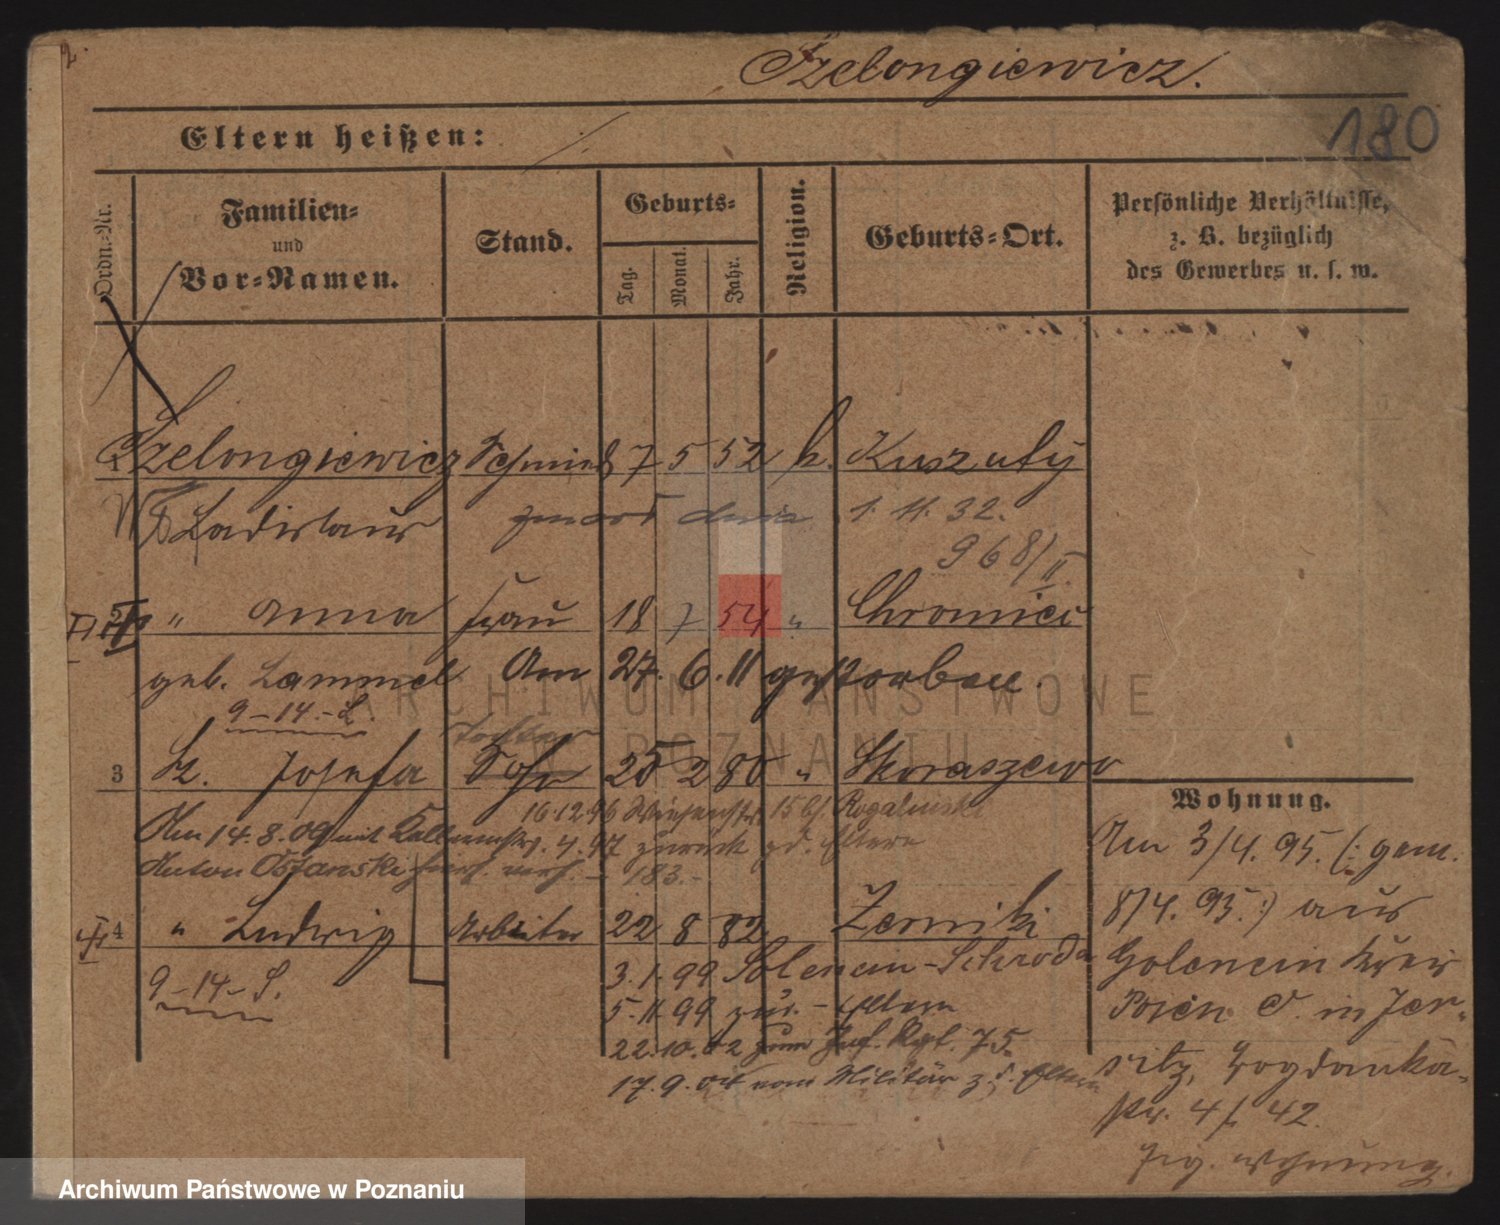 2.
Szelongiewicz.
180
Eltern heißen:
Ordn.-Nr.
Familien-
und
Vor-Namen.
Stand.
Geburts-
Tag.
Monat.
Jahr.
Religion.
Geburts-Ort.
Persönliche Verhältnisse,
z. B. bezüglich
des Gewerbes u. s. w.
1 Szelongiewicz Schmied 7 5 52 k. Kuszuty
Ladislaus
zmarł dnia 1. 11. 32.
968/II.
" Anna Frau 18 7 54 "
geb. Lammel Am 27. 6. 11 gestorben.
9-14.-L.
Tochter
3 Sz. Josefa Sohn 25 2 80 " Skoraszewo
16.12.96 15 Rogalinski
Am 14.8.09 mit 4.97 zurück zd. Eltern
Anton Osfanski verh. - 183.-
4 " Ludwig Arbeiter 22 8 82 Zerniki
9-14-S.
3.1.99 -Schroda
5.11.99 zur. - Eltern
22.10.02 zum Inf. Rgt. 75.
17.9.04 vom Militär z. d. Eltern
Wohnung.
Am 3/4. 95. (: gem.
8/4. 95. :) aus
Golencin Kreis
Posen O. in Jer-
sitz, Bogdanka-
str. 4/ 42.
Wohnung.
ARCHIWUM PAŃSTWOWE
W POZNANIU
Archiwum Państwowe w Poznaniu